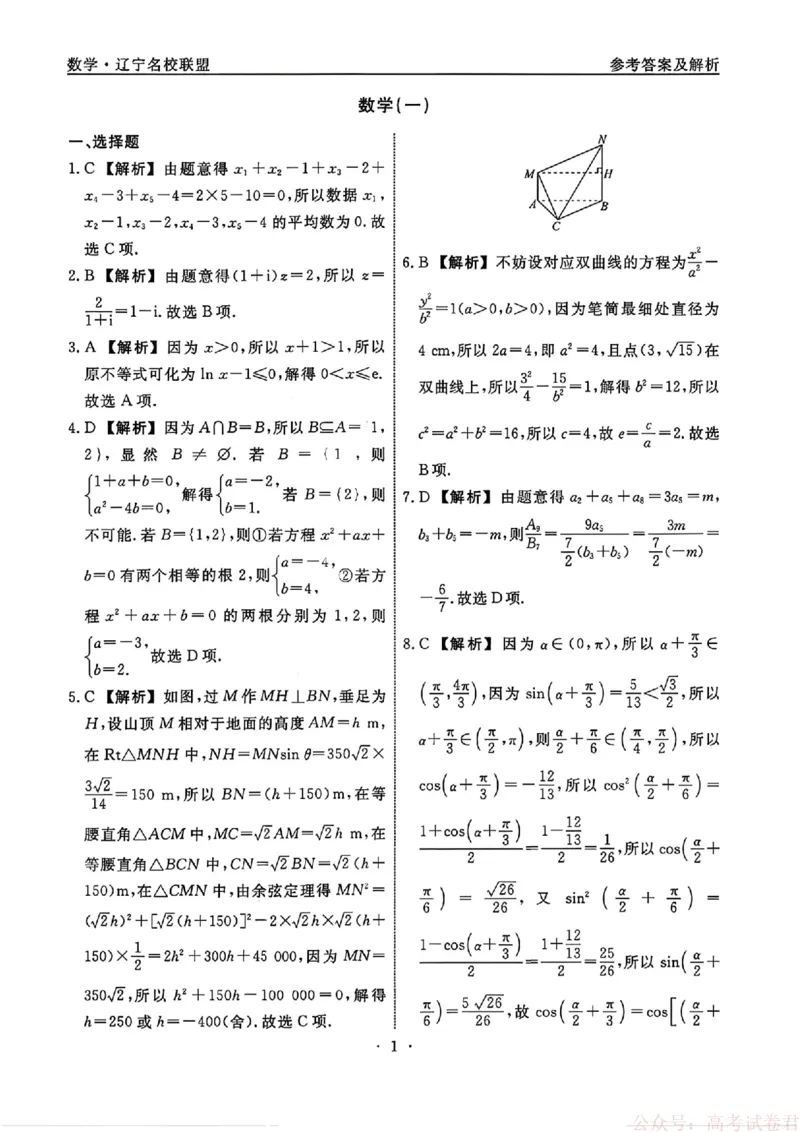 数学·辽宁名校联盟 参考答案及解析
数学(一)
一、选择题
1. C 【解析】由题意得 x₁+x₂-1+x₃-2+
x₄-3+x₅-4=2×5-10=0,所以数据 x₁,
x₂-1,x₃-2,x₄-3,x₅-4 的平均数为 0. 故
选 C 项.
2. B 【解析】由题意得(1+i)z=2,所以 z=
2/(1+i)=1-i. 故选 B 项.
3. A 【解析】因为 x>0,所以 x+1>1,所以
原不等式可化为 ln x-1≤0,解得 0<x≤e.
故选 A 项.
4. D 【解析】因为 A∩B=B,所以 B⊆A= 1,
2}, 显然 B ≠ ∅. 若 B = {1 , 则
{1+a+b=0, a²-4b=0, 解得 {a=-2, b=1. 若 B={2},则
不可能. 若 B={1,2},则①若方程 x²+ax+
b=0 有两个相等的根 2,则{a=-4, b=4, ②若方
程 x²+ax+b=0 的两根分别为 1,2,则
{a=-3, b=2. 故选 D 项.
5. C 【解析】如图,过 M 作 MH⊥BN,垂足为
H,设山顶 M 相对于地面的高度 AM=h m,
在 Rt△MNH 中,NH=MNsin θ=350√2×
3√2/14=150 m,所以 BN=(h+150)m,在等
腰直角△ACM 中,MC=√2AM=√2h m,在
等腰直角△BCN 中,CN=√2BN=√2(h+
150)m,在△CMN 中,由余弦定理得 MN²=
(√2h)²+[√2(h+150)]²-2×√2h×√2(h+
150)×1/2=2h²+300h+45 000,因为 MN=
350√2,所以 h²+150h-100 000=0,解得
h=250 或 h=-400(舍). 故选 C 项.
N
M H
A B
C
6. B 【解析】不妨设对应双曲线的方程为x²/a²-
y²/b²=1(a>0,b>0),因为笔筒最细处直径为
4 cm,所以 2a=4,即 a²=4,且点(3,√15)在
双曲线上,所以3²/4-15/b²=1,解得 b²=12,所以
c²=a²+b²=16,所以 c=4,故 e=c/a=2. 故选
B 项.
7. D 【解析】由题意得 a₂+a₅+a₈=3a₅=m,
b₃+b₅=-m,则A₉/B₇=9a₅/(7/2(b₃+b₅))=3m/(7/2(-m))=
-6/7. 故选 D 项.
8. C 【解析】因为 α∈(0,π),所以 α+π/3∈
(π/3,4π/3),因为 sin(α+π/3)=5/13<√3/2,所以
α+π/3∈(π/2,π),则α/2+π/6∈(π/4,π/2),所以
cos(α+π/3)=-12/13,所以 cos²(α/2+π/6)=
(1+cos(α+π/3))/2=(1-12/13)/2=1/26,所以 cos(α/2+
π/6)=√26/26,又 sin²(α/2+π/6)=
(1-cos(α+π/3))/2=(1+12/13)/2=25/26,所以 sin(α/2+
π/6)=5√26/26,故 cos(α/2+π/3)=cos[(α/2+
· 1 ·
公众号:高考试卷君